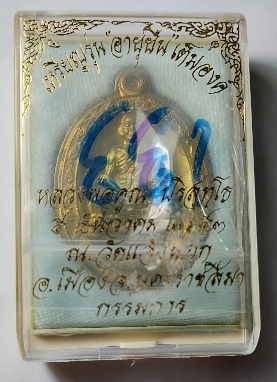 เหรียญรุ่น "อายุยืน" เต็มองค์
หลวงพ่อคูณ ปริสุทโธ
๕ ธันวาคม ๒๕๔๓
ณ. วัดแจ้งนอก
อ.เมือง จ.นครราชสีมา
กรรมการ